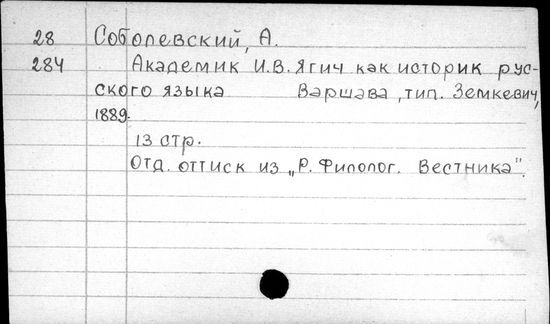 28 Соболевский, А.
284 Академик И.В. Ягич как историк рус-
ского языка Варшава, тип. Земкевич,
1889.
13 стр.
Отд. оттиск из „Р. Филолог. Вестника".